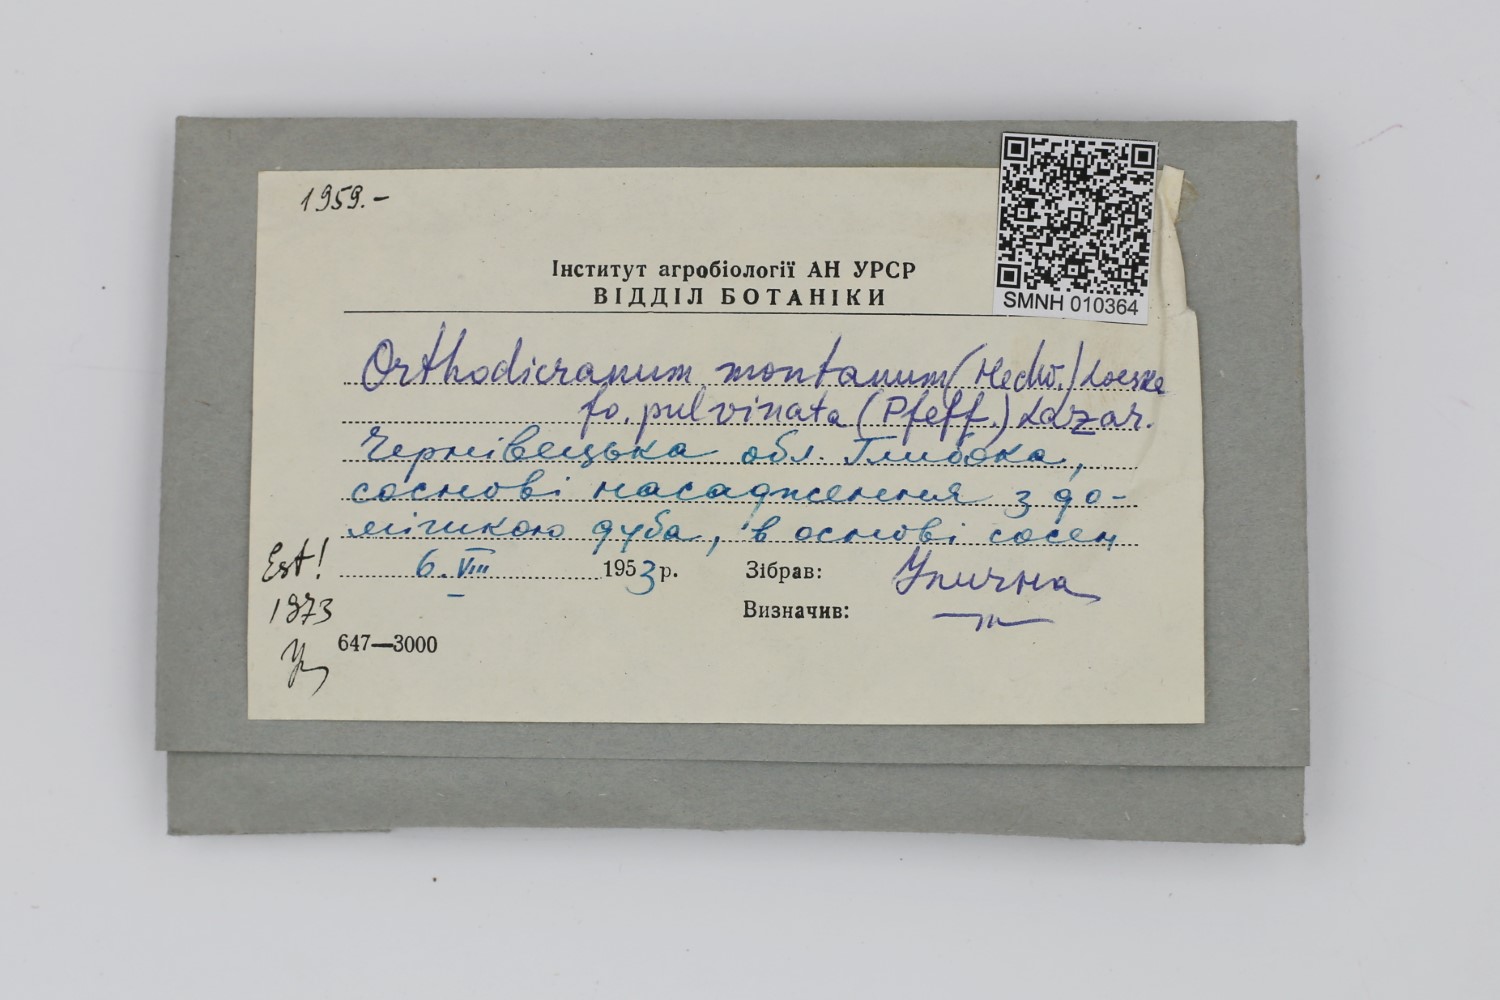 1959.-
Інститут агробіології АН УРСР
ВІДДІЛ БОТАНІКИ
SMNH 010364
Orthodicranum montanum (Hedw.) Loeske
fo. pulvinata (Pfeff.) Lazar.
Чернівецька обл. Глибока,
соснові насадження з до-
мішкою дуба, в основі сосен
Est! 6. VIII 1953 р. Зібрав: Улична
1973 Визначив: —"—
647—3000